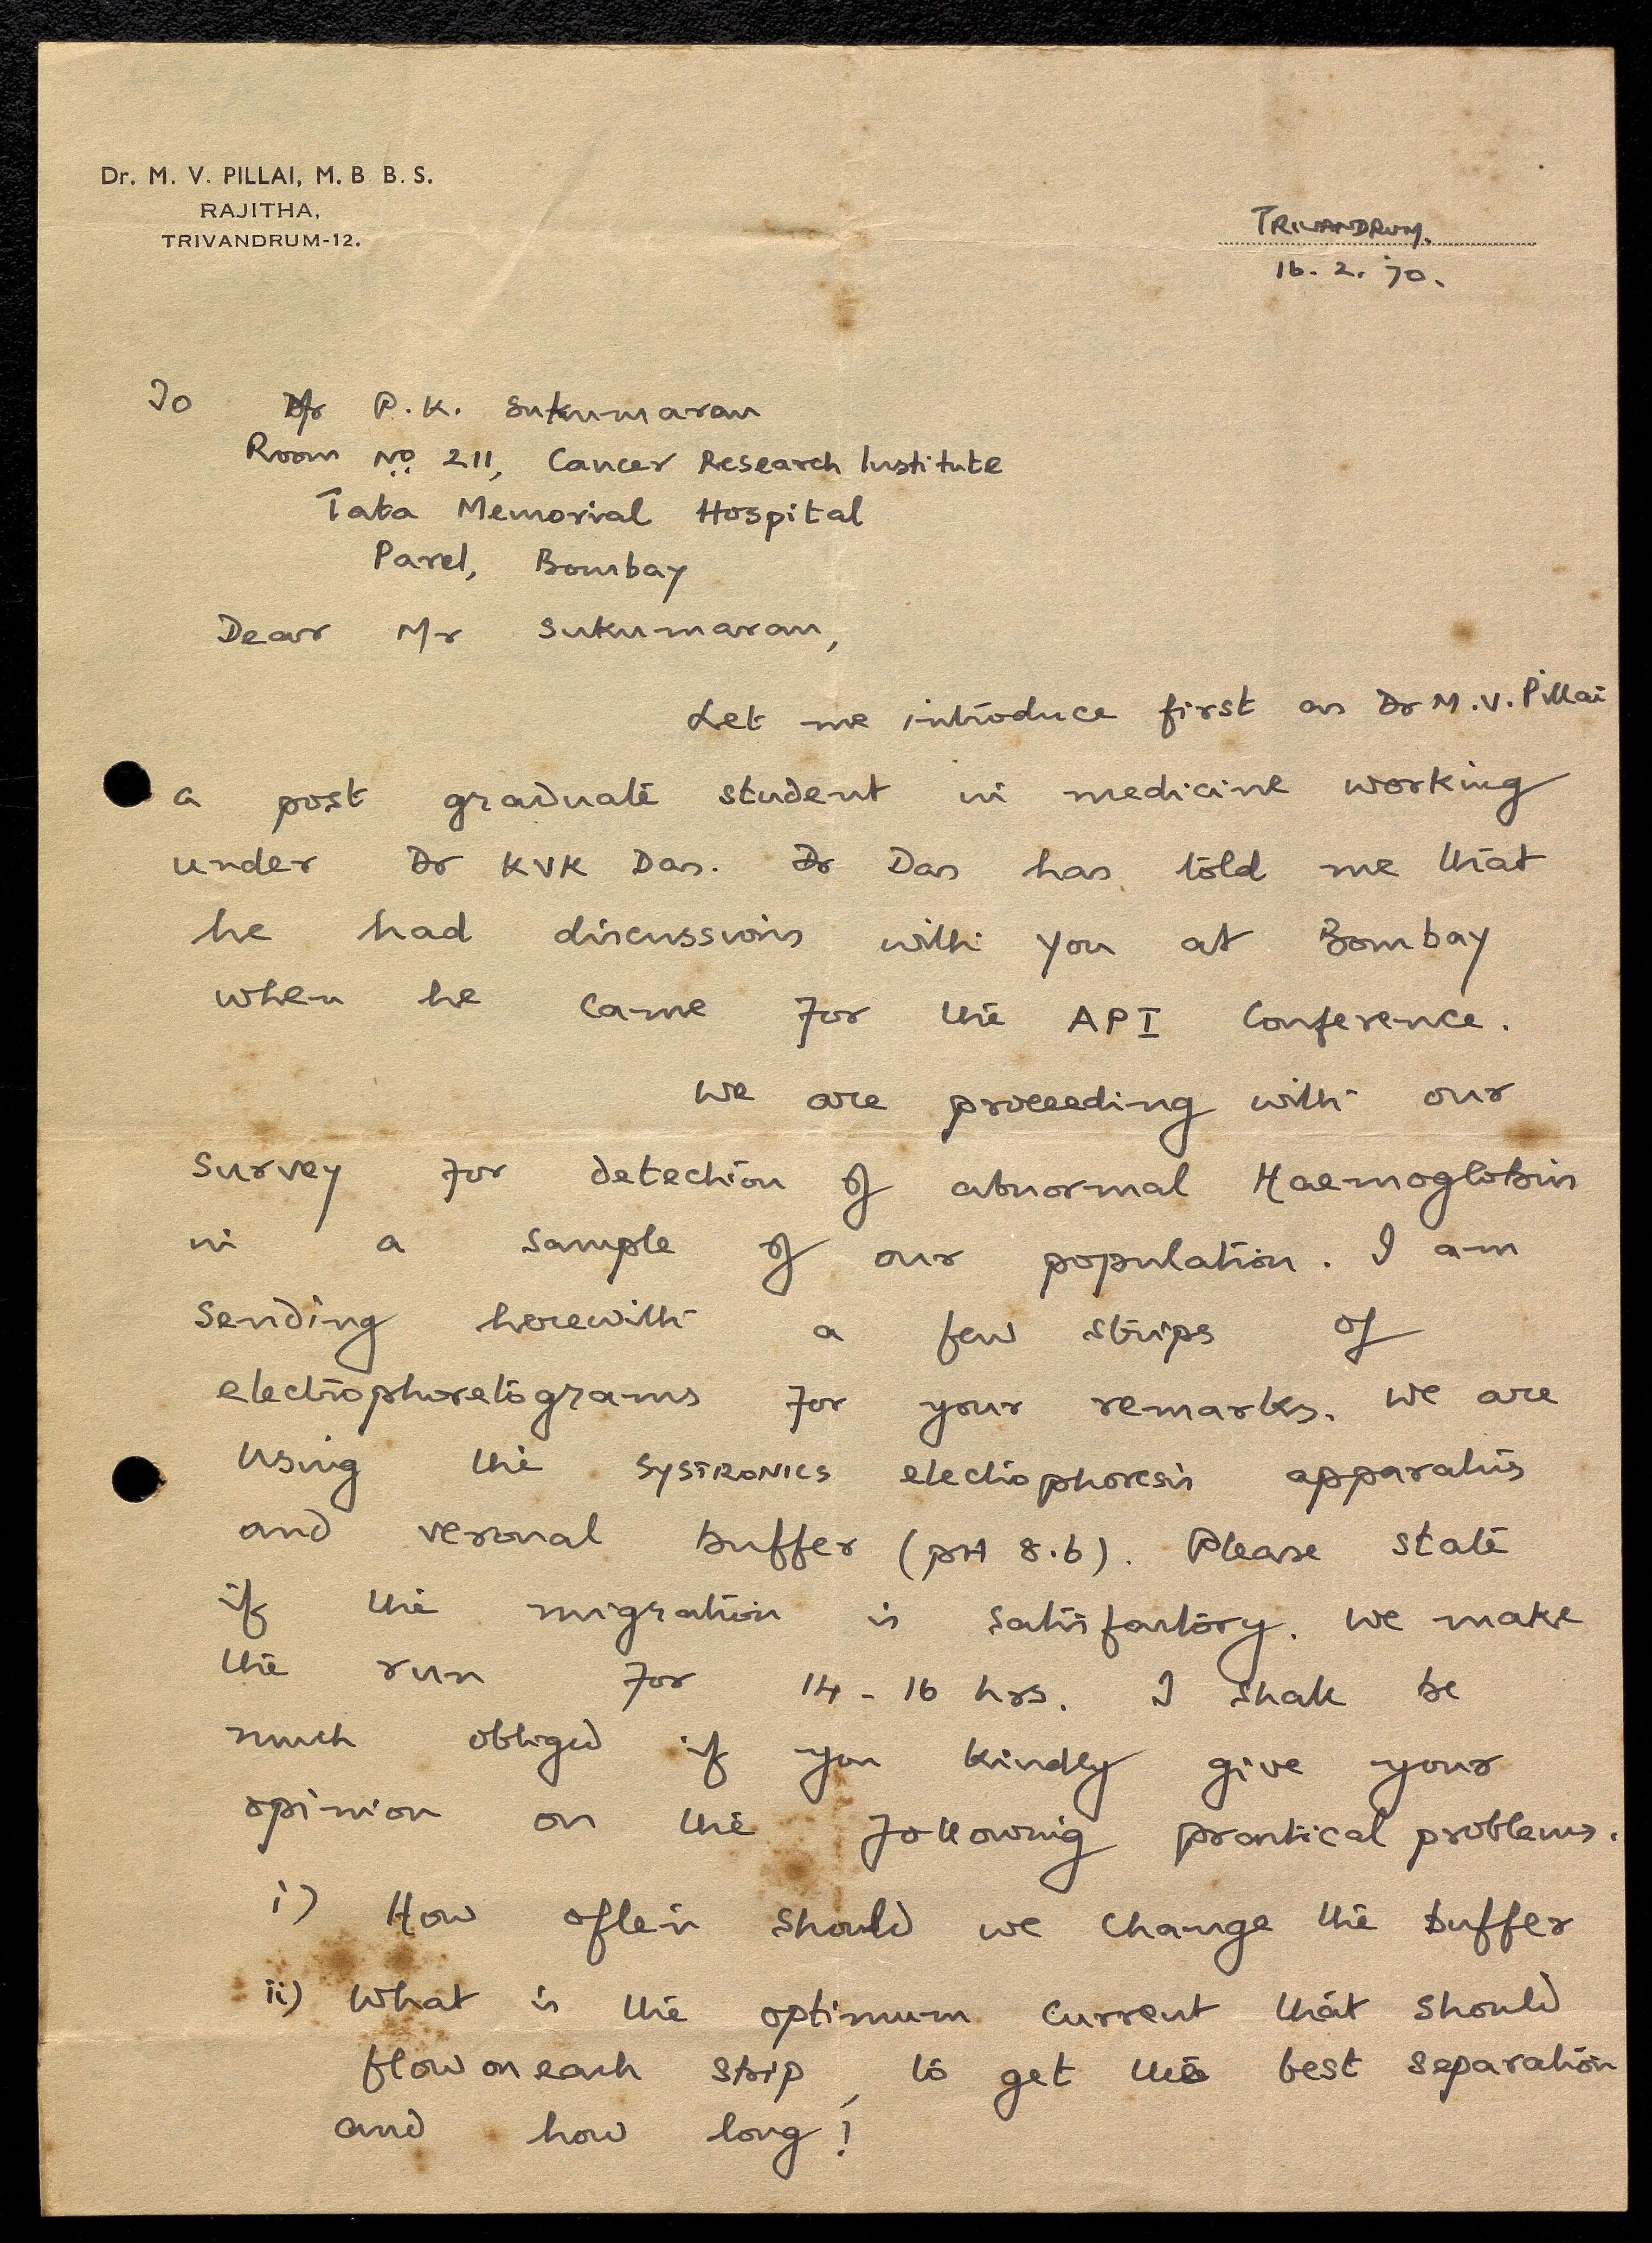 Dr. M. V. PILLAI, M. B. B. S.
RAJITHA,
TRIVANDRUM-12.
TRIVANDRUM.
16. 2. '70.
To Mr P.K. Sukumaran
Room No 211, Cancer Research Institute
Tata Memorial Hospital
Parel, Bombay
Dear Mr Sukumaran,
Let me introduce first as Dr M.V. Pillai
a post graduate student in medicine working
under Dr KVK Das. Dr Das has told me that
he had discussions with you at Bombay
when he came for the API Conference.
We are proceeding with our
survey for detection of abnormal Haemoglobin
in a sample of our population. I am
sending herewith a few strips of
electrophoretograms for your remarks. We are
using the SYSTRONICS electrophoresis apparatus
and veronal buffer (pH 8.6). Please state
if the migration is satisfactory. We make
the run for 14 - 16 hrs. I shall be
much obliged if you kindly give your
opinion on the following practical problems.
i) How often should we change the buffer
ii) What is the optimum current that should
flow on each strip, to get the best separation
and how long?